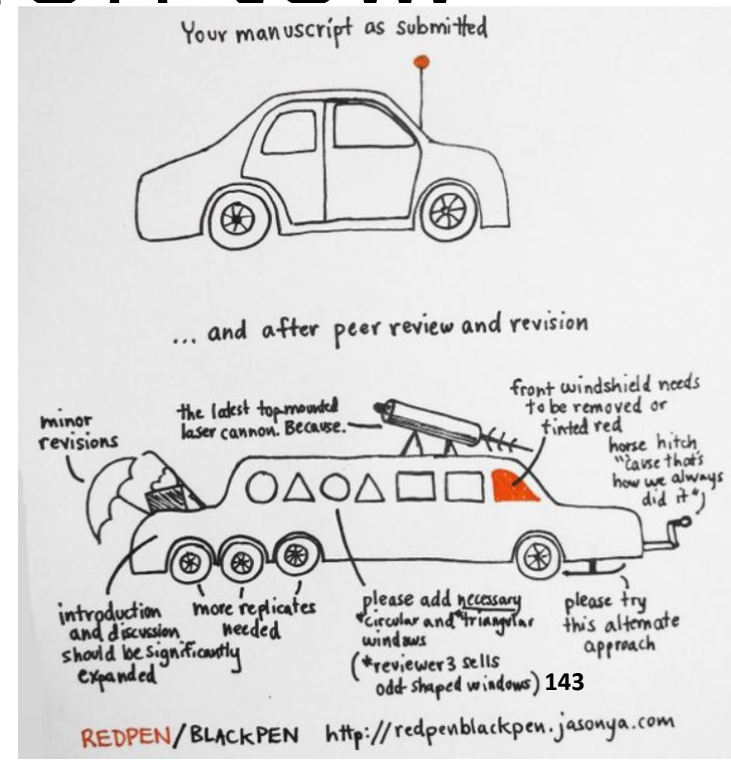 Your manuscript as submitted
... and after peer review and revision
minor
revisions
the latest top mounted
laser cannon. Because.
front windshield needs
to be removed or
tinted red
horse hitch
"'cause that's
how we always
did it"
introduction
and discussion
should be significantly
expanded
more replicates
needed
please add necessary
*circular and *triangular
windows
(*reviewer 3 sells
odd-shaped windows) 143
please try
this alternate
approach
REDPEN/BLACKPEN http://redpenblackpen.jasonya.com